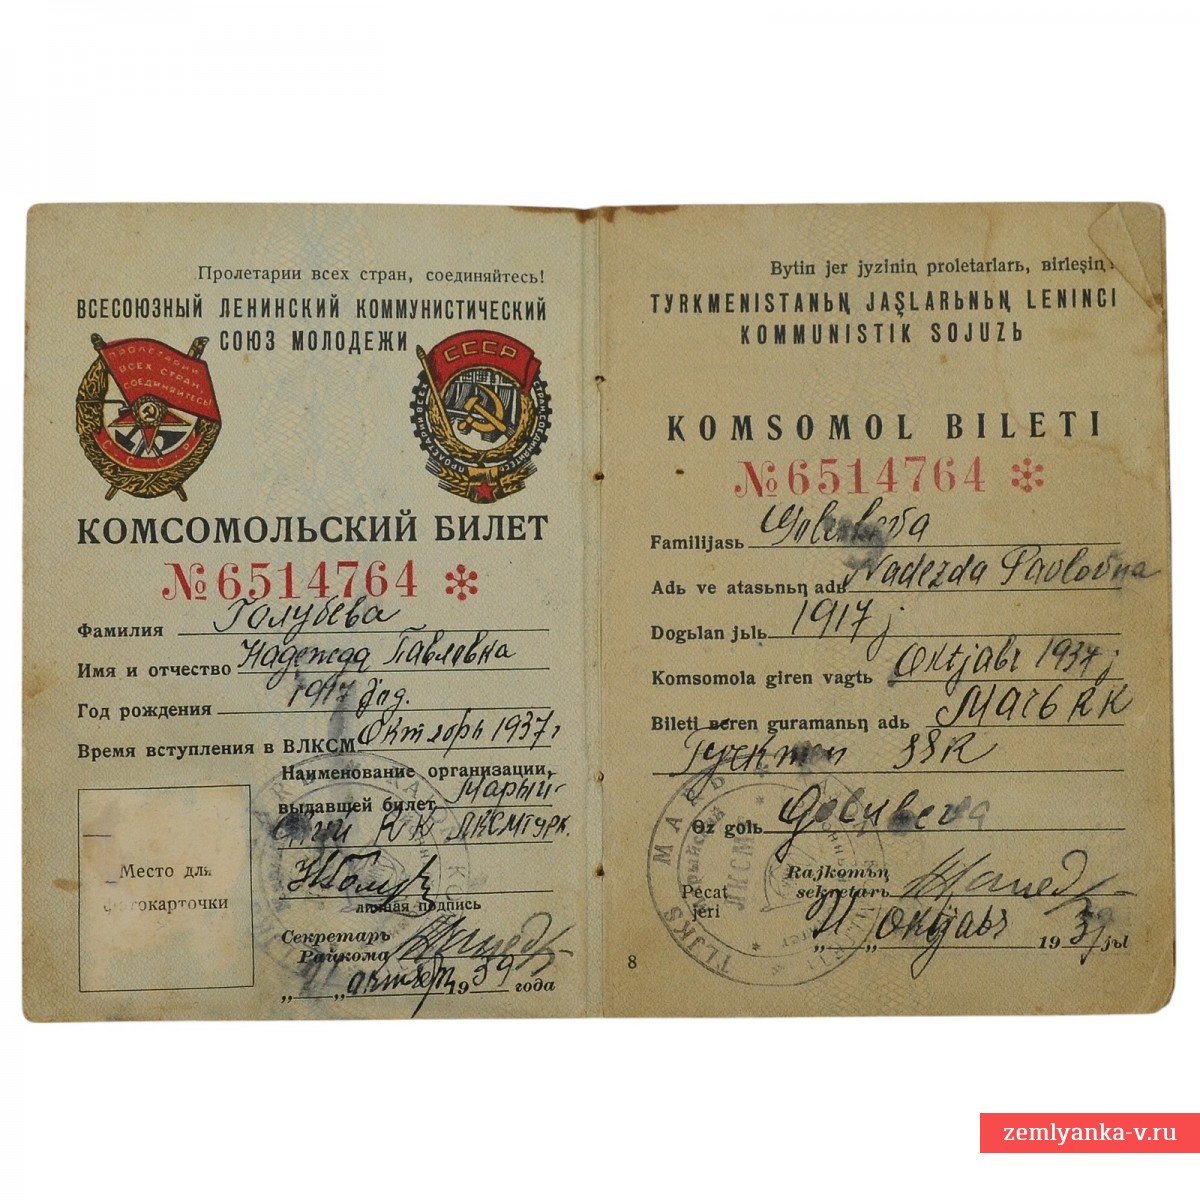 Пролетарии всех стран, соединяйтесь!
ВСЕСОЮЗНЫЙ ЛЕНИНСКИЙ КОММУНИСТИЧЕСКИЙ
СОЮЗ МОЛОДЕЖИ
ПРОЛЕТАРИИ
ВСЕХ СТРАН,
СОЕДИНЯЙТЕСЬ!
С.С.С.Р.
СССР
ПРОЛЕТАРИИ ВСЕХ СТРАН, СОЕДИНЯЙТЕСЬ
КОМСОМОЛЬСКИЙ БИЛЕТ
№6514764 ✻
Фамилия Голубева
Имя и отчество Надежда Павловна
Год рождения 1917 год.
Время вступления в ВЛКСМ Октябрь 1937г
Наименование организации,
выдавшей билет Марый-
ский РК ЛКСМТурк.
личная подпись
Место для
фотокарточки
Секретарь
Райкома
„ “ октября 1939 года
Bytin jer jyziniꞑ proletarlarь, ʙirleşiꞑ!
TYRKMENISTANЬꞐ JAŞLARЬNЬꞐ LENINCI
KOMMUNISTIK SOJUZЬ
KOMSOMOL BILETI
№6514764 ✻
Familijasь Golubeva
Adь ve atasьnьꞑ adь Nadezda Pavlovna
Dogьlan jьlь 1917 j
Komsomola giren vagtь Oktjabr 1937 j
Bileti ʙeren guramanьꞑ adь Marь RK
SSR
Өz golь Golubeva
Pecat
jeri
Rajkomьꞑ
sekretarь
„11“ Oktjabr 1939 jьl
8
zemlyanka-v.ru